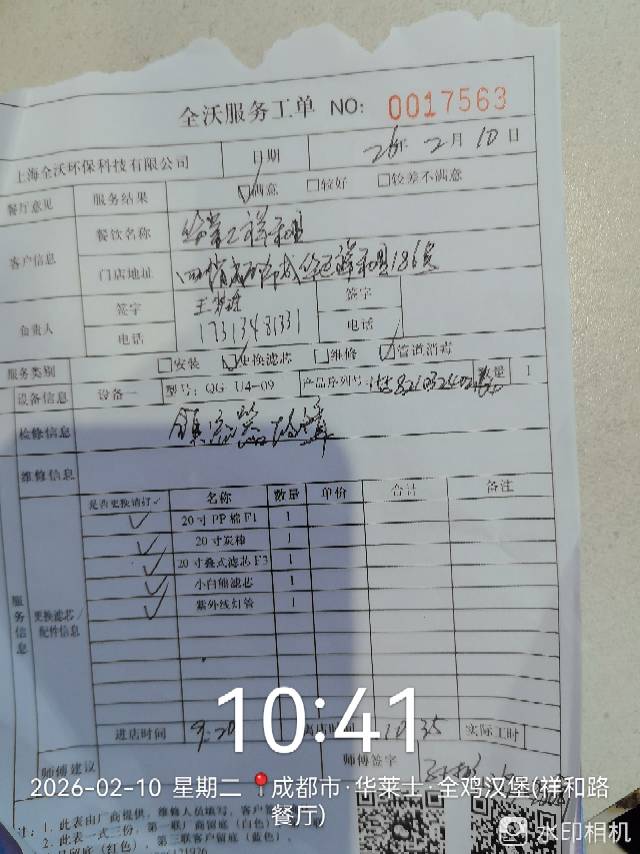 全沃服务工单 NO: 0017563
上海全沃环保科技有限公司 日期 26年 2月 10日
餐厅意见 服务结果 ☑满意 □较好 □较差不满意
客户信息 餐饮名称
门店地址 186号
负责人 签字 签字
电话 17313431331 电话
服务类别 □安装 ☑更换滤芯 □维修 ☑管道消毒
设备信息 设备一 型号: QG U4-09 产品序列号 数量 1
检修信息 镇流器故障
维修信息
服务信息 更换滤芯/配件信息 是否更换请打✓ 名称 数量 单价 合计 备注
✓ 20寸PP棉F1 1
✓ 20寸炭棒 1
✓ 20寸叠式滤芯F3 1
✓ 小白熊滤芯 1
✓ 紫外线灯管 1
进店时间 9:20 离店时间 10:35 实际工时
师傅建议 师傅签字
10:41
2026-02-10 星期二 成都市·华莱士·全鸡汉堡(祥和路餐厅)
注: 1、此表由厂商提供, 维修人员填写, 客户
2、此表一式三份, 第一联厂商留底 (白色)
留底 (红色)、第三联客户留底 (蓝色),
水印相机